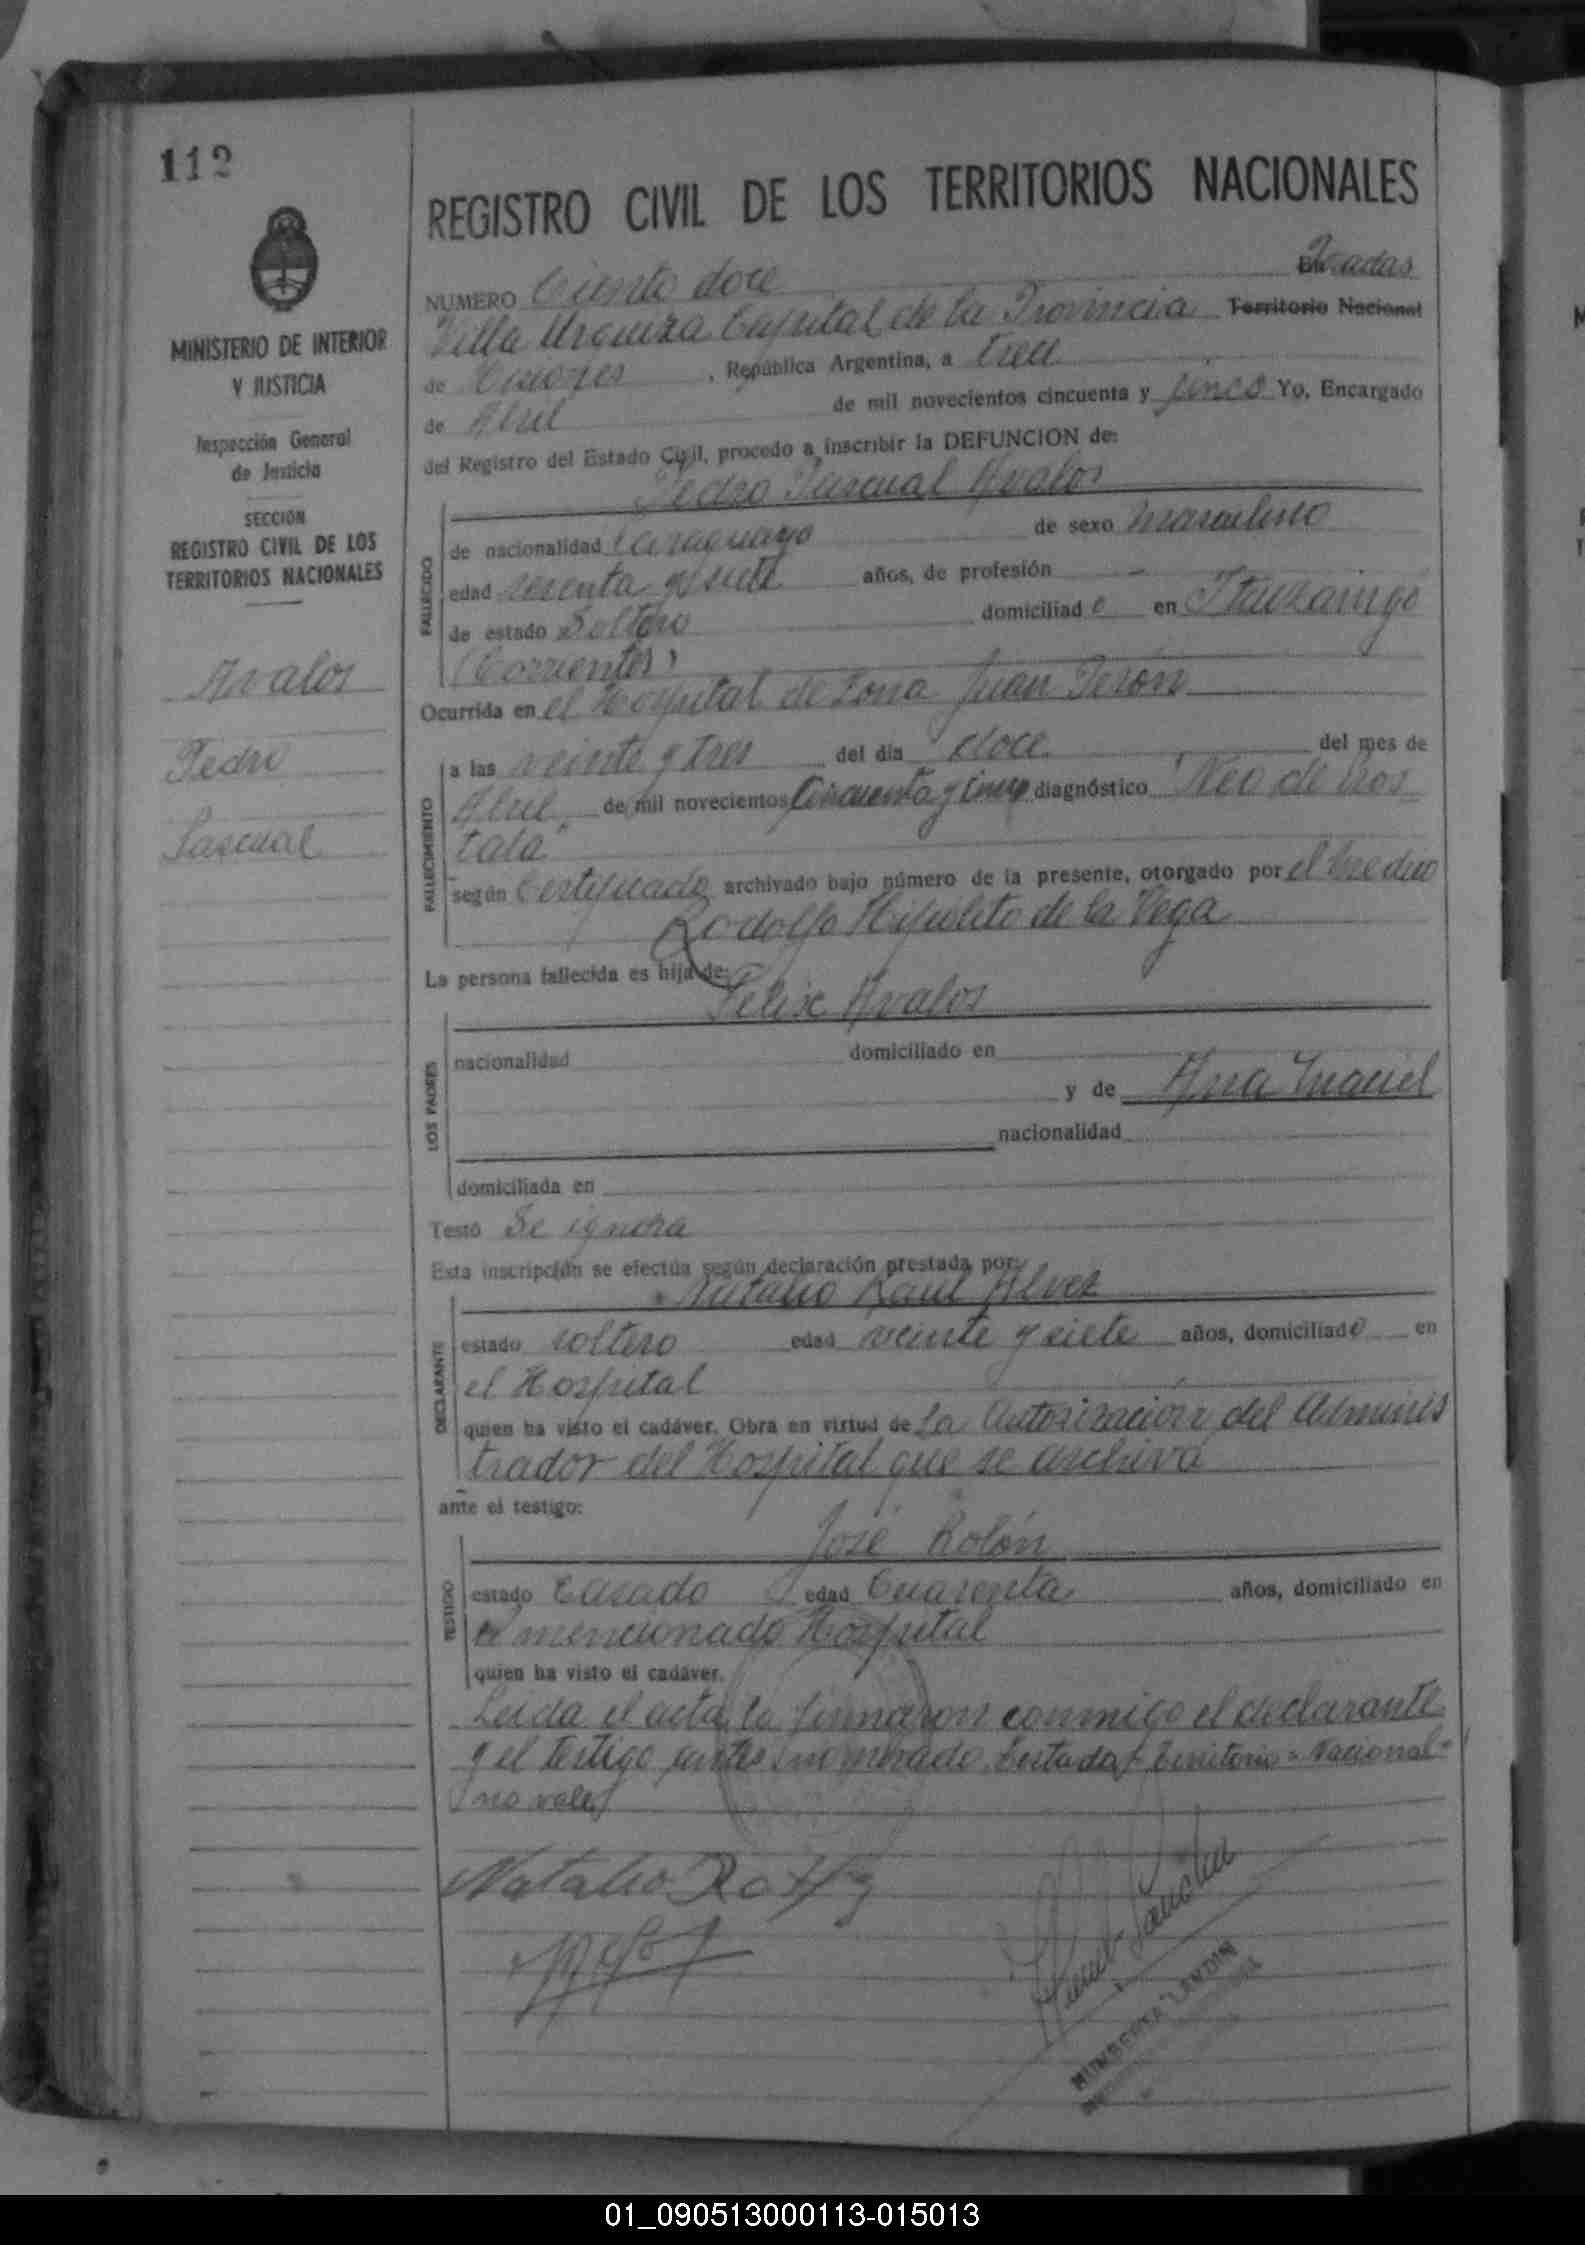 112
MINISTERIO DE INTERIOR
Y JUSTICIA
Inspección General
de Justicia
SECCION
REGISTRO CIVIL DE LOS
TERRITORIOS NACIONALES
Avalos
Pedro
Pascual
REGISTRO CIVIL DE LOS TERRITORIOS NACIONALES
NUMERO Ciento doce En Posadas
Villa Urquiza Capital de la Provincia Territorio Nacional
de Misiones, República Argentina, a trece
de Abril de mil novecientos cincuenta y cinco Yo, Encargado
del Registro del Estado Civil, procedo a inscribir la DEFUNCION de:
Pedro Pascual Avalos
FALLECIDO
de nacionalidad Paraguayo de sexo masculino
edad sesenta y siete años, de profesión -
de estado Soltero domiciliado en Ituzaingó
(Corrientes)
Ocurrida en el Hospital de Zona Juan Perón
FALLECIMIENTO
a las veinte y tres del día doce del mes de
Abril de mil novecientos Cincuenta y Cinco diagnóstico "Neo de Pros
tata"
según Certificado archivado bajo número de la presente, otorgado por el Medico
Rodolfo Hipolito de la Vega
La persona fallecida es hija de:
Felix Avalos
LOS PADRES
nacionalidad domiciliado en
y de Ana Maciel
nacionalidad
domiciliada en
Testó Se ignora
Esta inscripción se efectúa según declaración prestada por:
Natalio Raul Alvez
DECLARANTE
estado soltero edad veinte y siete años, domiciliado en
el Hospital
quien ha visto el cadáver. Obra en virtud de La Autorización del Adminis
trador del Hospital que se archiva
ante el testigo:
José Rolón
TESTIGO
estado Casado edad Cuarenta años, domiciliado en
el mencionado Hospital
quien ha visto el cadáver.
Leida el acta, la firmaron conmigo el declarante
y el testigo antes nombrado. Testado: Territorio = Nacional =
no vale
Natalio R.
01_090513000113-015013